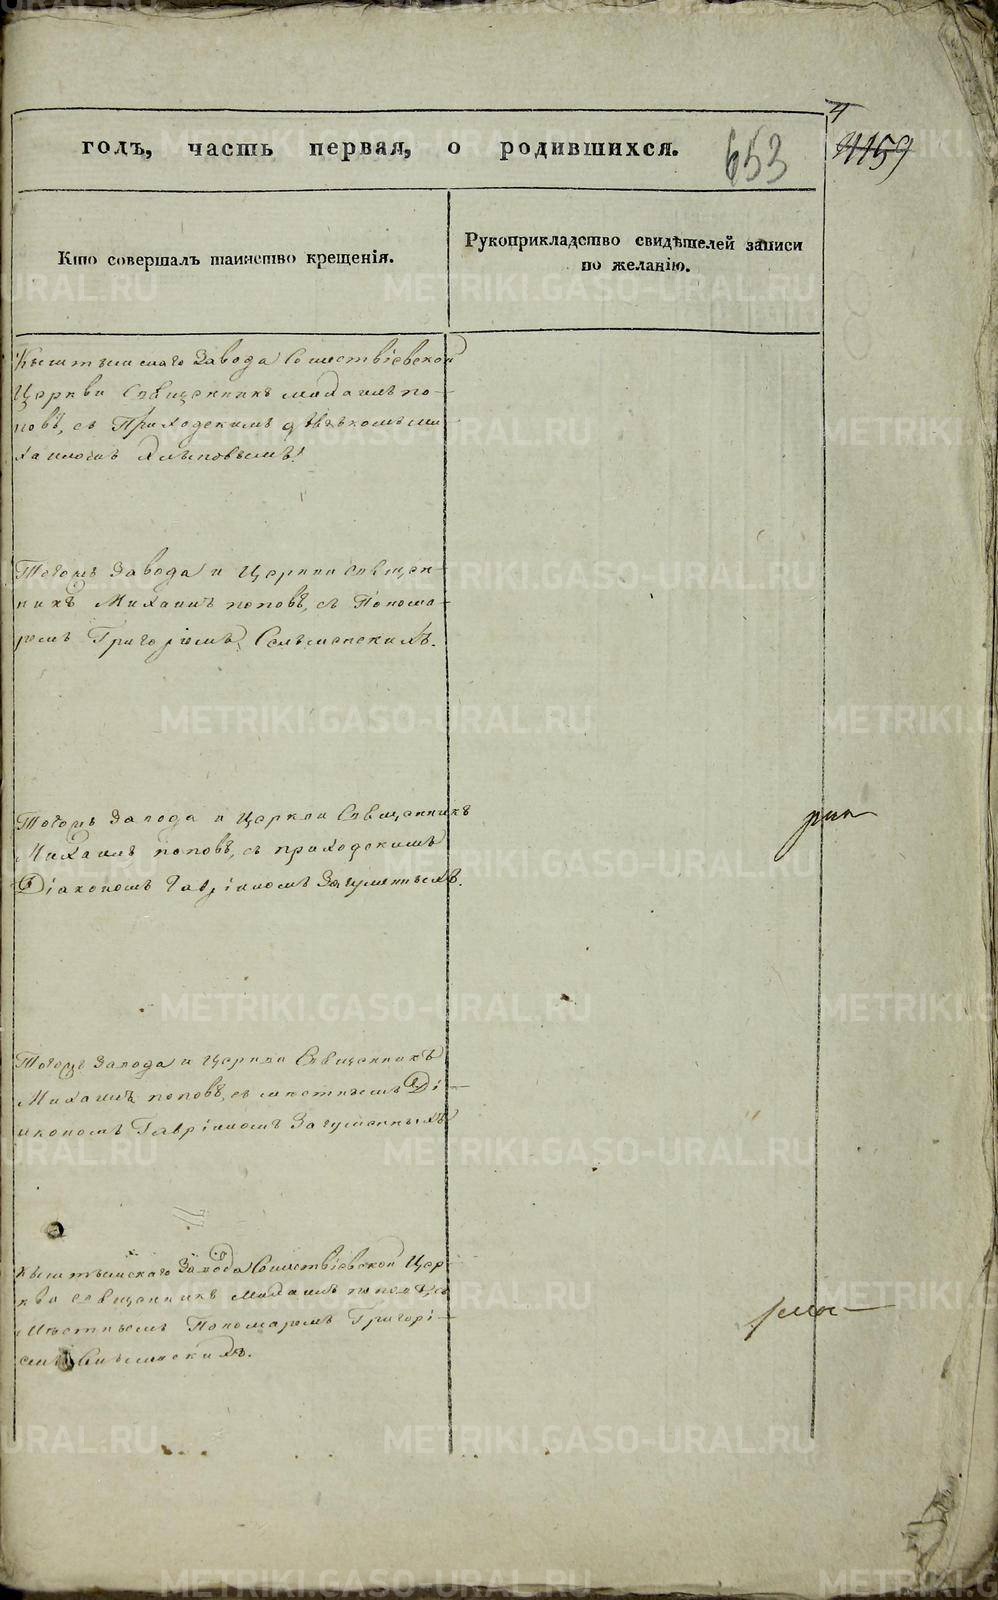 годъ, часть первая, о родившихся.
653
4
4159
Кто совершалъ таинство крещенія.
Рукоприкладство свидѣтелей записи
по желанію.
Кыштымскаго Завода Сошествіевской
Церкви Священникъ Михаилъ по-
повъ, съ Приходскимъ дьячкомъ ми
хаиломъ
Тогожъ Завода и Церкви Священ-
никъ Михаилъ поповъ, съ Понома-
ремъ Григоріемъ
Тогожъ Завода и Церкви Священникъ
Михаилъ поповъ, съ приходскимъ
Діакономъ Гавріиломъ Загуменныхъ.
Тогожъ Завода и Церкви Священникъ
Михаилъ поповъ, съ местнымъ Ді-
акономъ Гавріиломъ Загуменныхъ
Кыштымскаго Завода Сошествіевской Цер-
кви священникъ Михаилъ поповъ съ
Местнымъ Пономаремъ Григорі-
емъ
METRIKI.GASO-URAL.RU